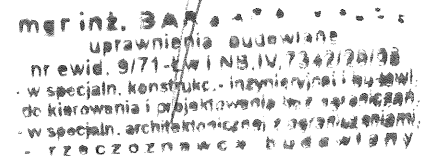 mgr inż.
uprawnienia budowlane
nr ewid. 9/71-Lw i NB.IV.7342/
- w specjaln. konstrukc.- inżynieryjnej i budowl.
do kierowania i projektowania bez ograniczeń
- w specjaln. architektonicznej z ograniczeniami
- rzeczoznawca budowlany